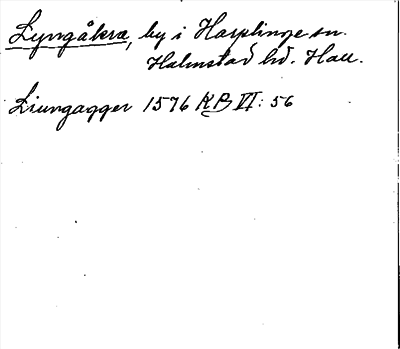 Lyngåkra, by i Harplinge sn.
Halmstad hd. Hall.
Liungagger 1576 KB VI: 56